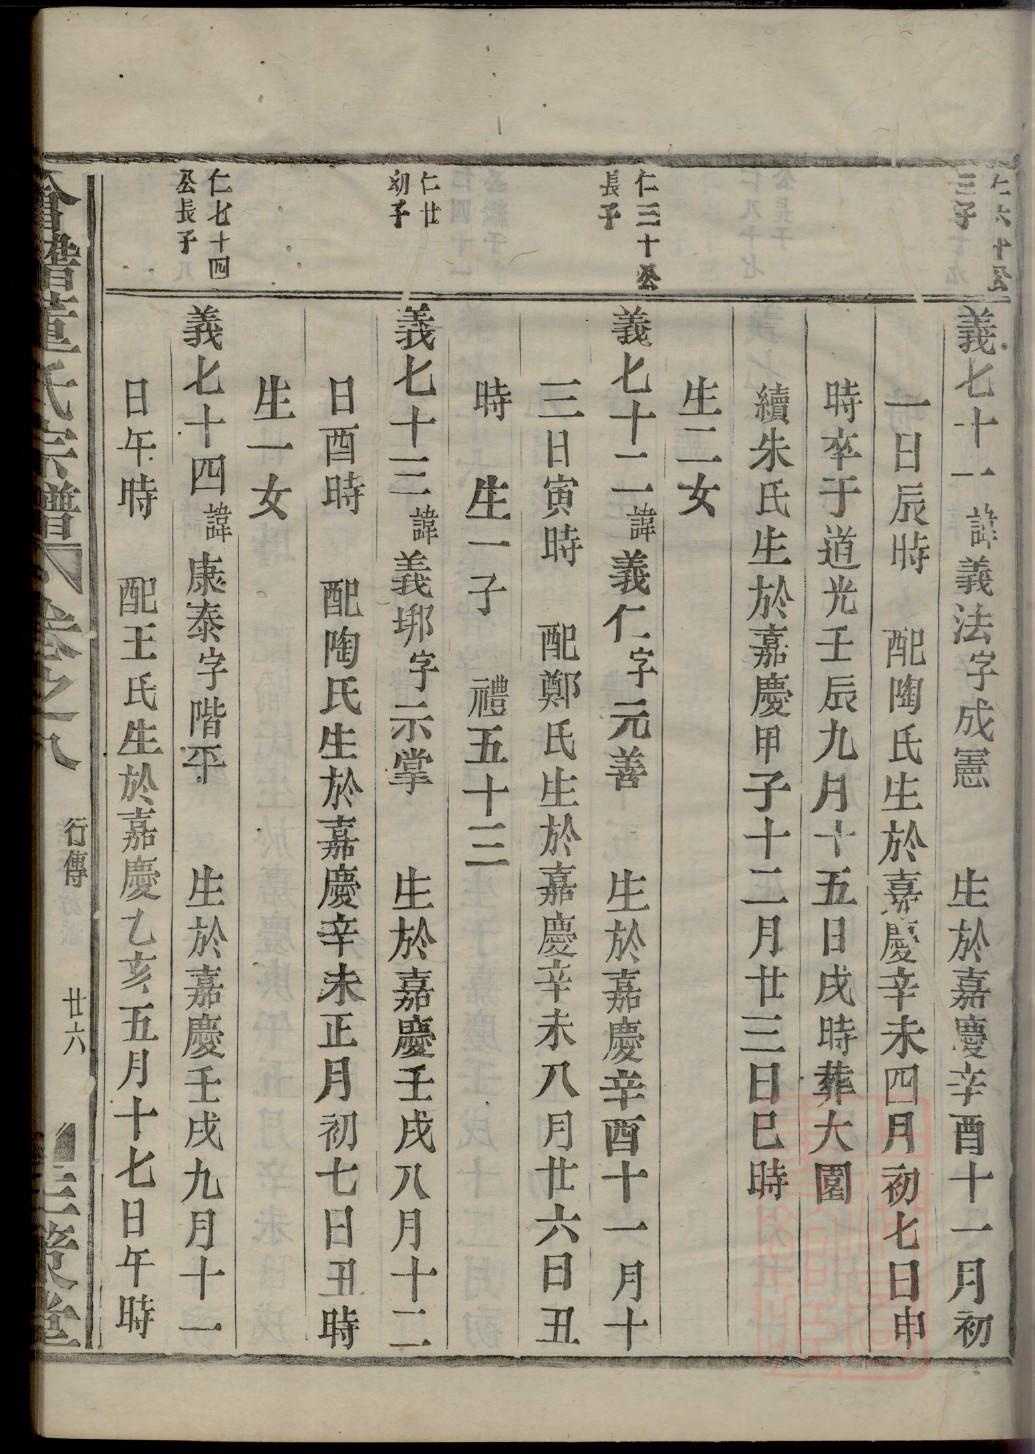 仁六十公
三子
義七十一諱義法字成憲 生於嘉慶辛酉十一月初
一日辰時 配陶氏生於嘉慶辛未四月初七日申
時卒于道光壬辰九月十五日戌時葬大園
續朱氏生於嘉慶甲子十二月廿三日巳時
生二女
仁三十公
長子
義七十二諱義仁字元善 生於嘉慶辛酉十一月十
三日寅時 配鄭氏生於嘉慶辛未八月廿六日丑
時 生一子 禮五十三
仁廿
幼子
義七十三諱義邦字示掌 生於嘉慶壬戌八月十二
日酉時 配陶氏生於嘉慶辛未正月初七日丑時
生一女
仁七十四
公長子
義七十四諱康泰字階平 生於嘉慶壬戌九月十一
日午時 配王氏生於嘉慶乙亥五月十七日午時
會稽董氏宗譜 卷之八 行傳 廿六